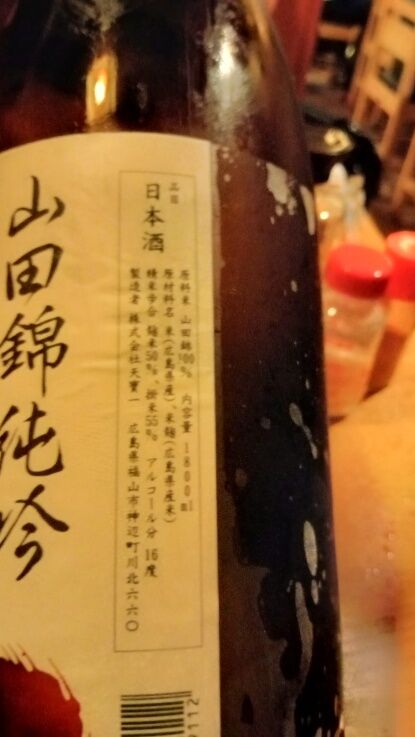 山田錦純吟
品目
日本酒
原料米 山田錦100% 内容量 1800ml
原材料名 米(広島県産)、米麹(広島県産米)
精米歩合 麹米50%、掛米55% アルコール分 16度
製造者 株式会社天寶一 広島県福山市神辺町川北六六〇